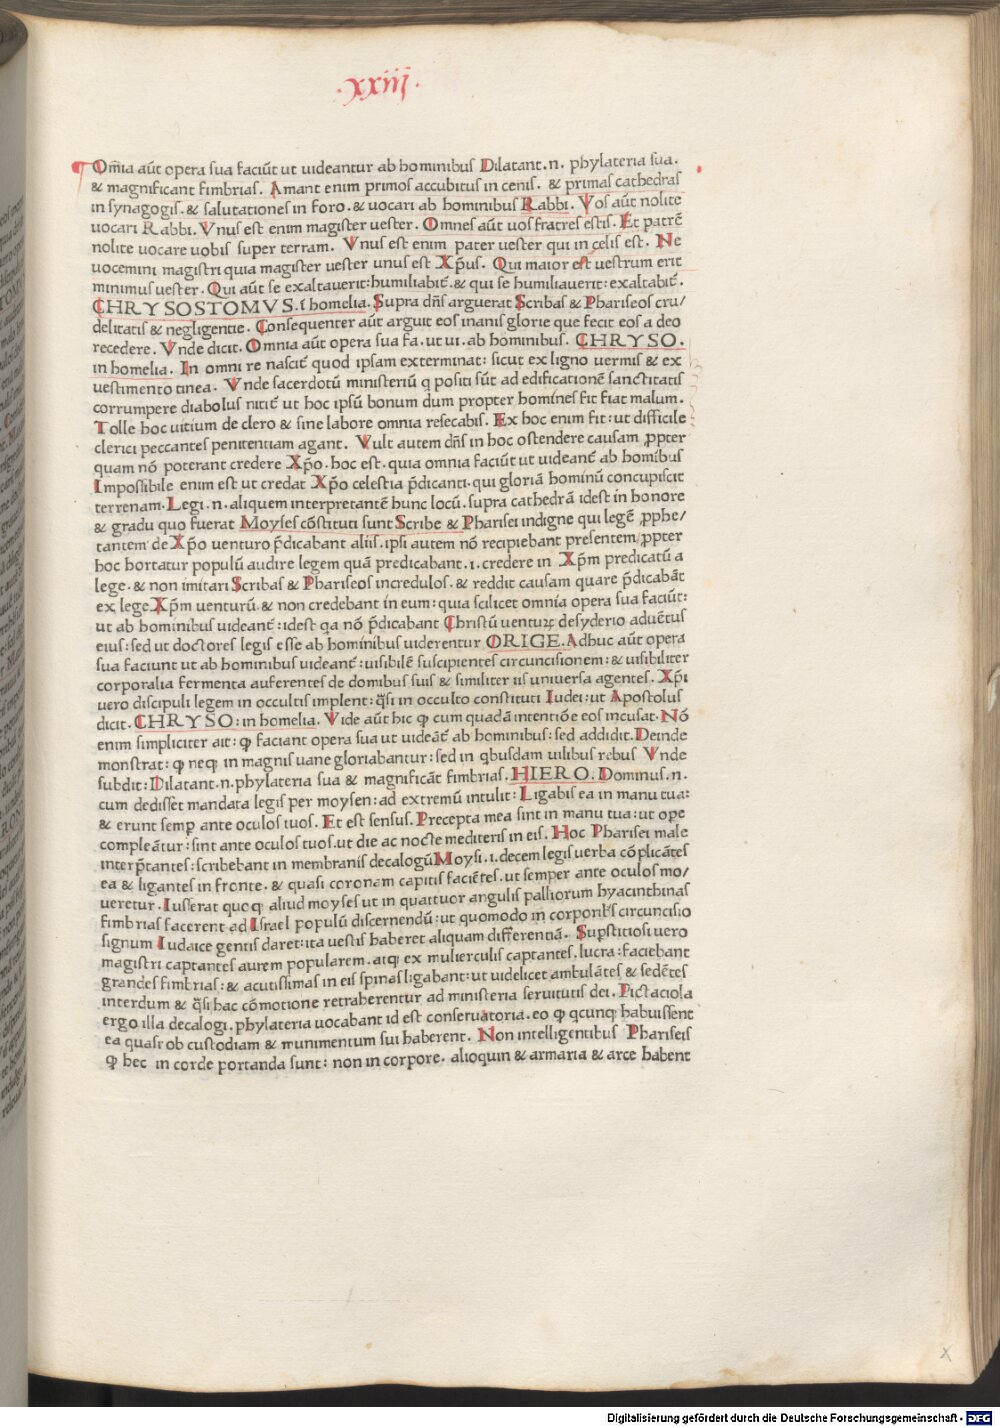 .xxiij.
Om̄ia aūt opera sua faciūt ut uideantur ab hominibus Dilatant.n. phylateria sua.
& magnificant fimbrias. Amant enim primos accubitus in cenis. & primas cathedras
in synagogis.& salutationes in foro.& uocari ab hominibus Rabbi. Vos aūt nolite
uocari Rabbi. Vnus est enim magister uester. Omnes aūt uos fratres estis. Et patrē
nolite uocare uobis super terram. Vnus est enim pater uester qui in celis est. Ne
uocemini magistri quia magister uester unus est Xp̄us. Qui maior est uestrum erit
minimus uester. Qui aūt se exaltauerit:humiliabit̄.& qui se humiliauerit:exaltabit̄.
CHRYSOSTOMVS.ī homelia. Supra dn̄s arguerat Scribas & Phariseos cru/
delitatis & negligentie. Consequenter aūt arguit eos inanis glorie que fecit eos a deo
recedere. Vnde dicit. Omnia aūt opera sua fa. ut ui. ab hominibus. CHRYSO.
in homelia. In omni re nascit̄ quod ipsam exterminat: sicut ex ligno uermis & ex
uestimento tinea. Vnde sacerdotū ministeriū q positi sūt ad edificationē sanctitatis
corrumpere diabolus nitit̄ ut hoc ipsū bonum dum propter homines fit fiat malum.
Tolle hoc uitium de clero & sine labore omnia resecabis. Ex hoc enim fit:ut difficile
clerici peccantes penitentiam agant. Vult autem dn̄s in hoc ostendere causam ꝓpter
quam nō poterant credere Xp̄o.hoc est.quia omnia faciūt ut uideant̄ ab homībus
Impossibile enim est ut credat Xp̄o celestia p̄dicanti.qui gloriā hominū concupiscit
terrenam.Legi.n.aliquem interpretantē hunc locū.supra cathedrā idest in honore
& gradu quo fuerat Moyses cōstituti sunt Scribe & Pharisei indigne qui legē ꝓphe/
tantem de Xp̄o uenturo p̄dicabant aliis.ipsi autem nō recipiebant presentem ꝓpter
hoc hortatur populū audire legem quā predicabant.i.credere in Xp̄m predicatū a
lege.& non imitari Scribas & Phariseos incredulos.& reddit causam quare p̄dicabāt
ex lege Xp̄m uenturū.& non credebant in eum:quia scilicet omnia opera sua faciūt:
ut ab hominibus uideant̄:idest qa nō p̄dicabant Christū uenturꝫ desyderio aduētus
eius:sed ut doctores legis esse ab hominibus uiderentur ORIGE.Adhuc aūt opera
sua faciunt ut ab hominibus uideant̄:uisibilē suscipientes circuncisionem:& uisibiliter
corporalia fermenta auferentes de domibus suis & similiter iis uniuersa agentes. Xp̄i
uero discipuli legem in occultis implent:q̄si in occulto constituti Iudei:ut Apostolus
dicit.CHRYSO:in homelia. Vide aūt hic ꝙ cum quadā intentiōe eos incusat.Nō
enim simpliciter ait:ꝙ faciant opera sua ut uideāt̄ ab hominibus:sed addidit.Deinde
monstrat:ꝙ neqꝫ in magnis uane gloriabantur:sed in qbusdam uilibus rebus Vnde
subdit:Dilatant.n.phylateria sua & magnificāt fimbrias.HIERO.Dominus.n.
cum dedisset mandata legis per moysen:ad extremū intulit:Ligabis ea in manu tua:
& erunt semp ante oculos tuos.Et est sensus.Precepta mea sint in manu tua:ut ope
compleātur:sint ante oculos tuos.ut die ac nocte mediteris in eis.Hoc Pharisei male
interp̄tantes:scribebant in membranis decalogū Moysi.i.decem legis uerba cōplicātes
ea & ligantes in fronte.& quasi coronam capitis faciētes.ut semper ante oculos mo/
ueretur.Iusserat quoqꝫ aliud moyses ut in quattuor angulis palliorum hyacinthinas
fimbrias facerent ad Israel populū discernendū:ut quomodo in corporibꝰ circuncisio
signum Iudaice gentis daret:ita uestis haberet aliquam differentiā. Supstitiosi uero
magistri captantes aurem popularem.atqꝫ ex mulierculis captantes.lucra:faciebant
grandes fimbrias:& acutissimas in eis spinas ligabant:ut uidelicet ambulātes & sedētes
interdum & q̄si hac cōmotione retraherentur ad ministeria seruitutis dei.Pictaciola
ergo illa decalogi.phylateria uocabant id est conseruatoria.eo ꝙ qcunqꝫ habuissent
ea quasi ob custodiam & munimentum sui haberent. Non intelligentibus Phariseis
ꝙ hec in corde portanda sunt:non in corpore.alioquin & armaria & arce habent
Digitalisierung gefördert durch die Deutsche Forschungsgemeinschaft - DFG